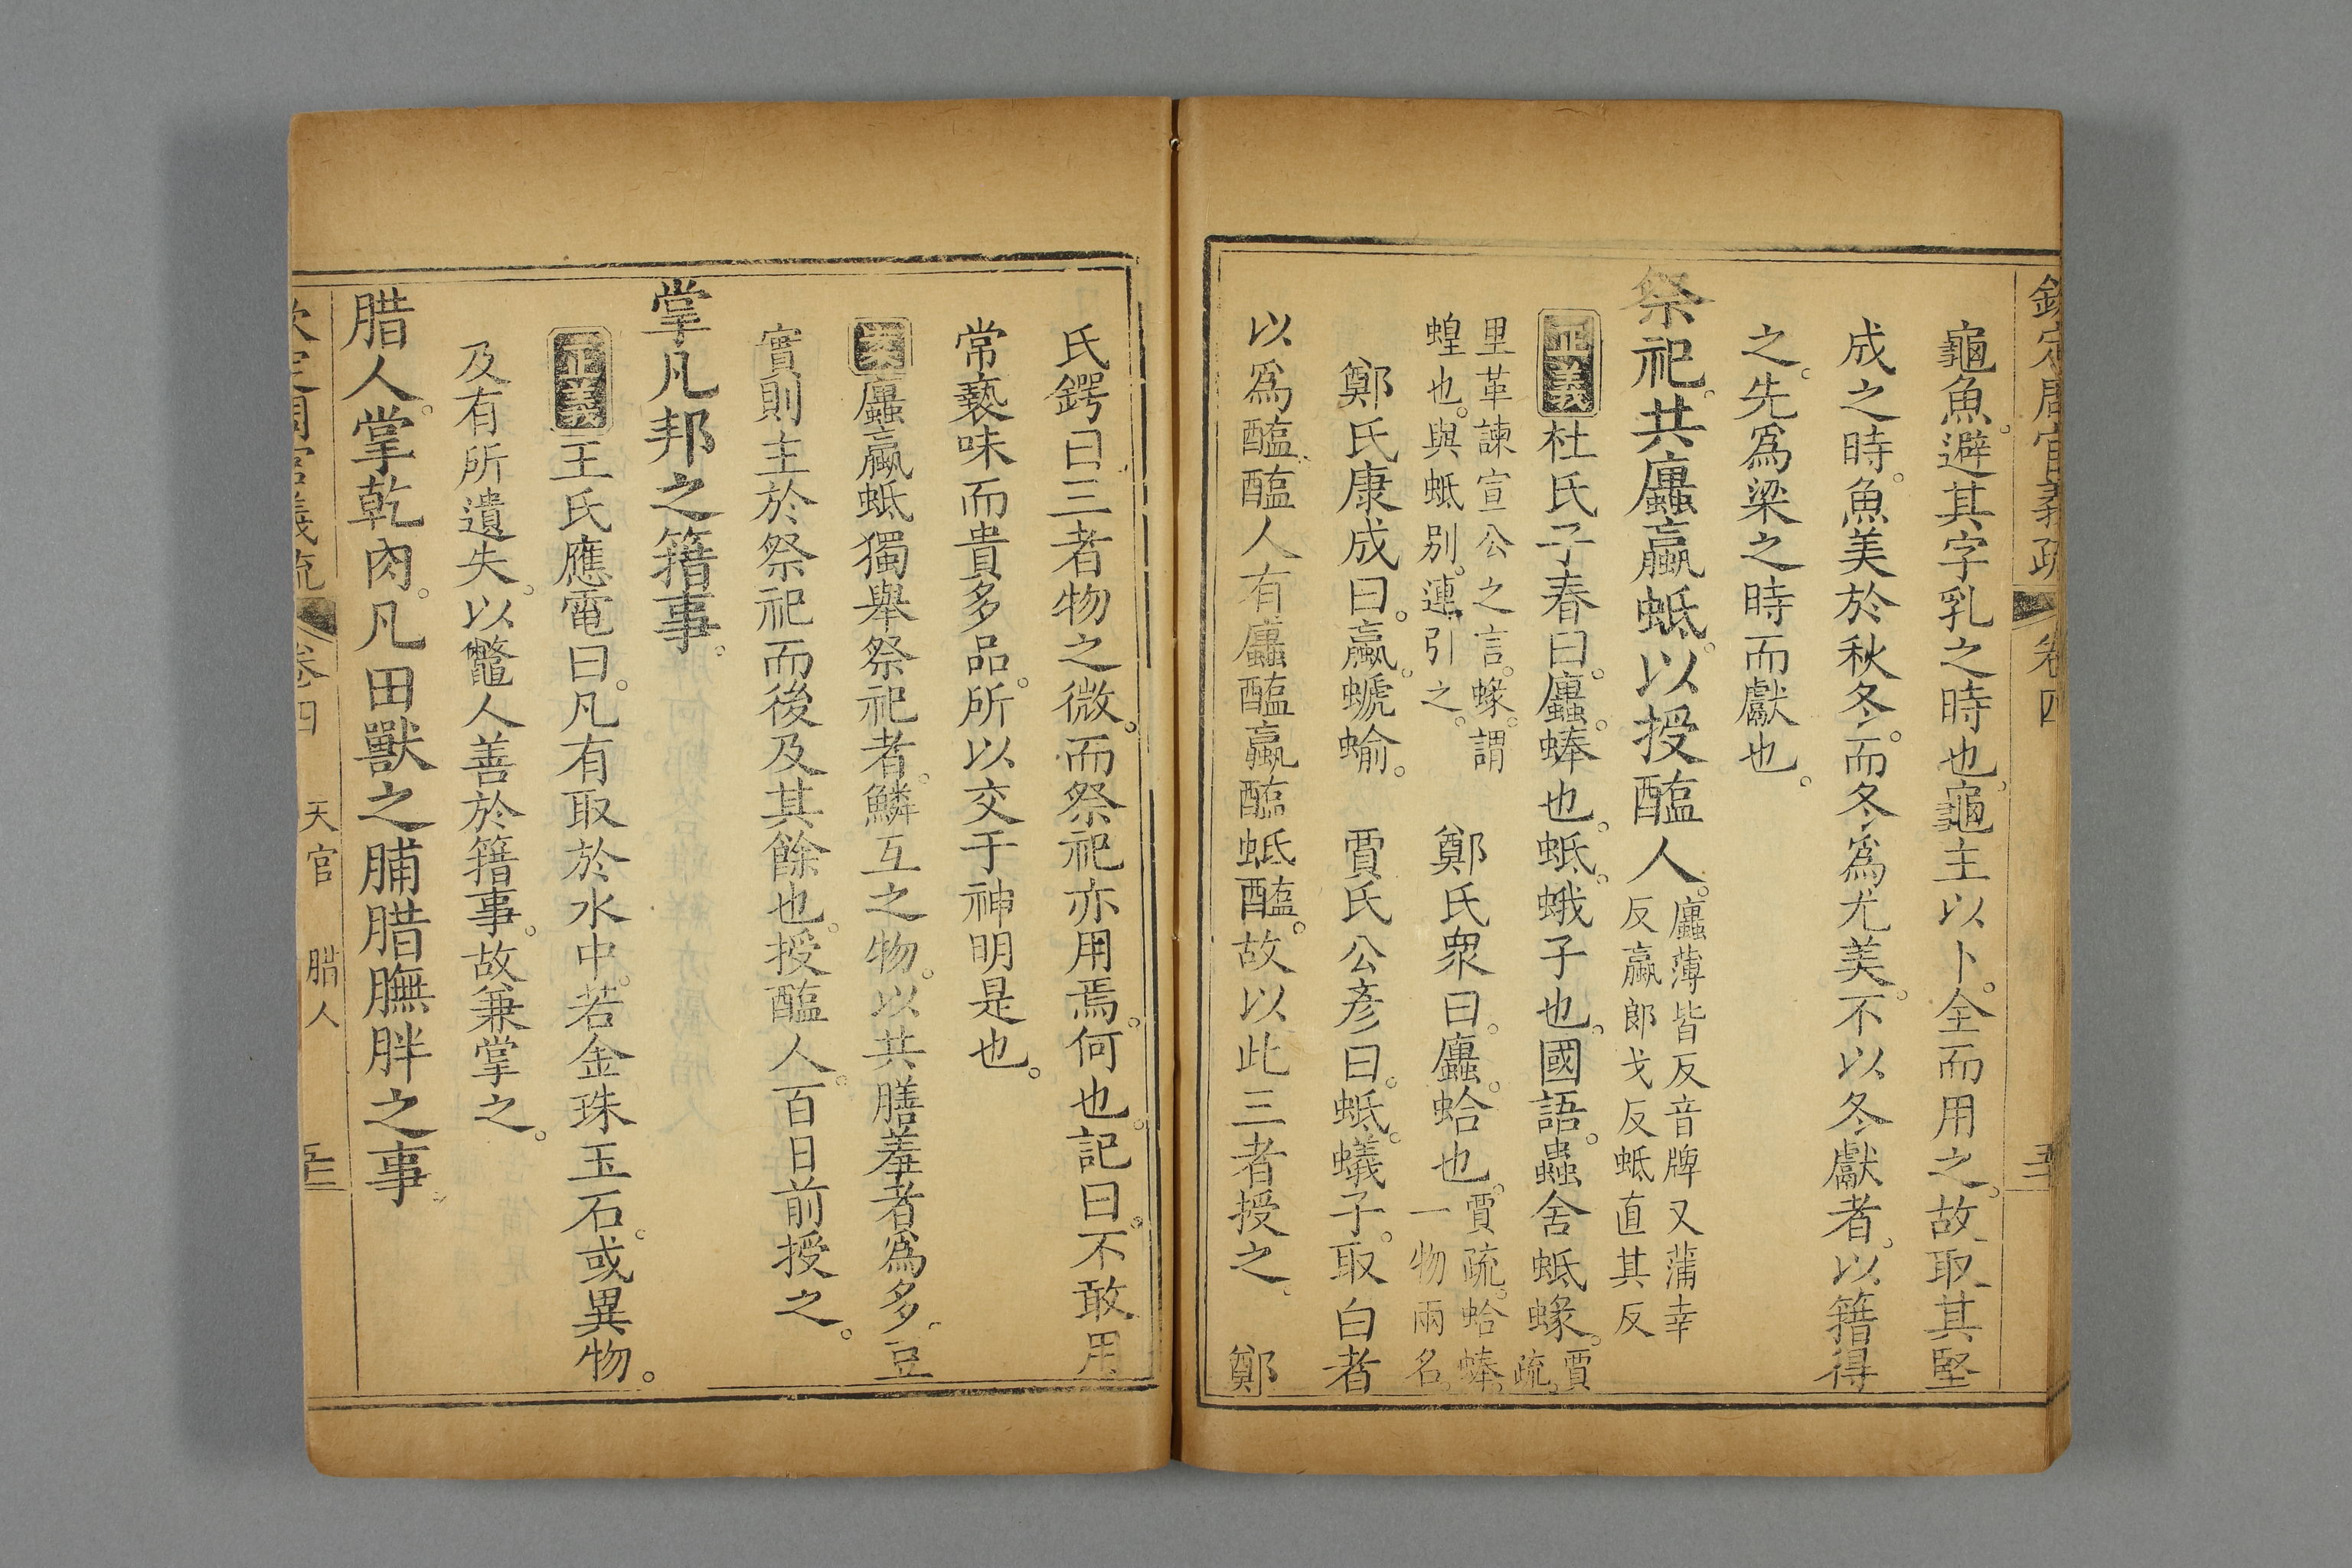 欽定周官義疏 卷四
龜魚避其字乳之時也。龜主以卜。全而用之。故取其堅
成之時。魚美於秋冬。而冬爲尤美。不以冬獻者。以籍得
之。先爲梁之時而獻也。
祭祀。共蠯蠃蚳。以授醢人。蠯薄皆反音牌又蒲幸
反蠃郎戈反蚳直其反
正義杜氏子春曰。蠯。蜯也。蚳。蛾子也。國語。蟲舍蚳蝝。賈
疏。
里革諫宣公之言。蝝。謂
蝗也。與蚳別。連引之。
鄭氏衆曰。蠯。蛤也。賈疏。蛤蜯。
一物兩名。
鄭氏康成曰。蠃。螔蝓。 賈氏公彥曰。蚳。蟻子。取白者
以爲醢。醢人有蠯醢蠃醢蚳醢。故以此三者授之。 鄭
氏鍔曰。三者物之微。而祭祀亦用焉。何也。記曰。不敢用
常褻味而貴多品。所以交于神明是也。
案蠯蠃蚳獨舉祭祀者。鱗互之物。以共膳羞者爲多。豆
實則主於祭祀而後及其餘也。授醢人。百日前授之。
掌凡邦之籍事。
正義王氏應電曰。凡有取於水中。若金珠玉石。或異物。
及有所遺失。以鼈人善於籍事。故兼掌之。
腊人。掌乾肉。凡田獸之脯腊膴胖之事。
卷四 天官 腊人